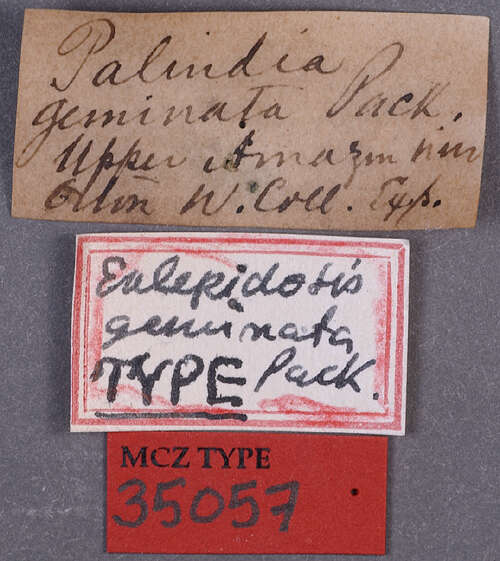 Palindia
geminata Pack.
Upper Amazon
W. Coll. Typ.
Eulepidotis
geminata
TYPE Pack.
MCZ TYPE
35057